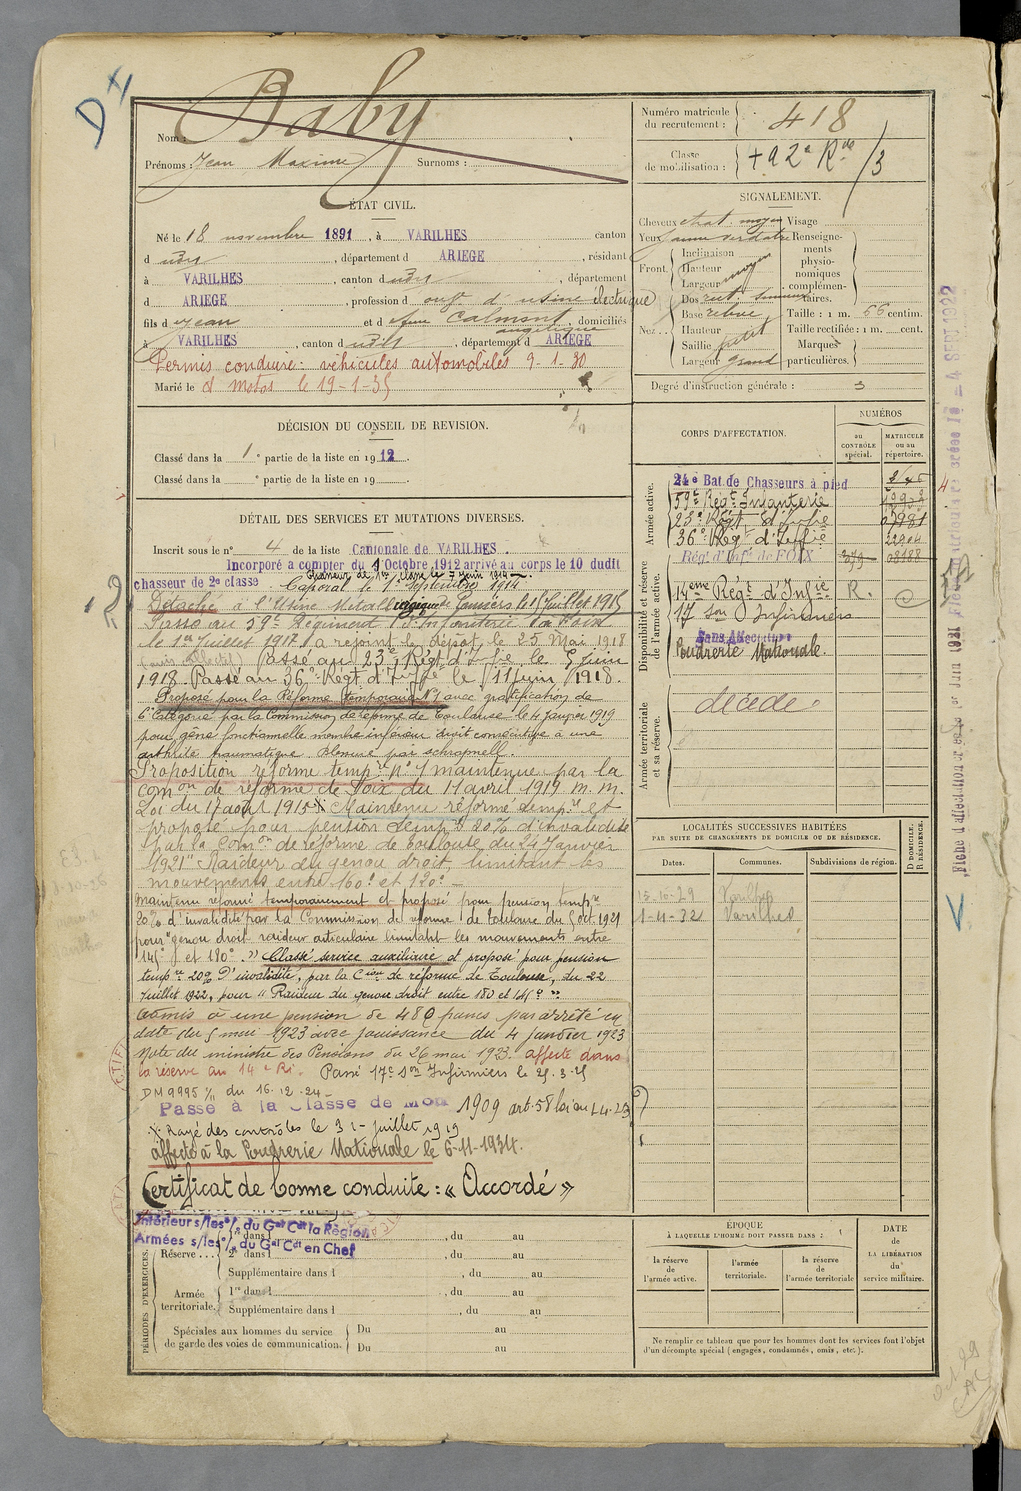 D4
Nom : Baby
Prénoms : Jean Maxime Surnoms :
Numéro matricule
du recrutement :
418
Classe
de mobilisation :
/3
ÉTAT CIVIL.
Né le 18 novembre 1891, à VARILHES canton
d udit, département d ARIEGE, résidant
à VARILHES, canton d udit, département
d ARIEGE, profession d ouvr d'usine électrique
fils d e Jean et d e Calmont, domiciliés
angélique
à VARILHES, canton d udit, département d ARIEGE
Permis conduire : véhicules automobiles 9-1-30
Marié le d motos le 19-1-35
SIGNALEMENT.
Cheveux chat. moyen Visage
Yeux jaune verdatre Renseigne-
ments
physio-
nomiques
complémen-
taires.
Front. Inclinaison
Hauteur moyen
Largeur
Nez. Dos rect. sinueux
Base relevé
Hauteur petit
Saillie
Largeur grand
Taille : 1 m. 66 centim.
Taille rectifiée : 1 m. cent.
Marques
particulières.
Degré d'instruction générale : 3
DÉCISION DU CONSEIL DE REVISION.
Classé dans la 1e partie de la liste en 1912.
Classé dans la e partie de la liste en 19 .
CORPS D'AFFECTATION.
NUMÉROS
au
CONTRÔLE
spécial.
MATRICULE
ou au
répertoire.
Armée active.
24e Bat. de Chasseurs à pied
59e Régt Infanterie
23e Régt d'Infie
36e Régt d'Inffie
22904
Disponibilité et réserve
de l'armée active.
Régt d'Infie de FOIX 379 08188
14eme Régt d'Infie R.
17 Son Infirmiers
Sans Affectation
Poudrerie Nationale.
Armée territoriale
et sa réserve.
décédé
DÉTAIL DES SERVICES ET MUTATIONS DIVERSES.
Inscrit sous le n° 4 de la liste Cantonale de VARILHES.
Incorporé a compter du 9 Octobre 1912 arrivé au corps le 10 dudit
chasseur de 2e classe. Chasseur de 1re classe le 7 juin 1914
Caporal le 1er Septembre 1914
Détaché à l'Usine Métallurgique Pamiers le 15 Juillet 1915
Passé au 59e Régiment d'Infanterie à Foix
le 1er Juillet 1917 a rejoint le dépôt le 25 Mai 1918
(avis collectif) Passé au 23e Régt d'Infie le 5 juin
1918. Passé au 36e Régt d'Inffie le 11 juin 1918.
Proposé pour la Réforme temporaire N°1 avec gratification de
6e Catégorie par la Commission de réforme de Toulouse le 4 Janvier 1919
pour gêne fonctionnelle membre inférieur droit consécutive à une
arthrite traumatique. Blessure par schrapnell.
Proposition réforme tempre n° 1 maintenue par la
Comon de réforme de Foix du 11 avril 1919 m. m.
Loi du 17 août 1915 X Maintenu réformé tempre et
proposé pour pension tempre 20% d'invalidité
par la Comon de réforme de Toulouse du 24 Janvier
1921 "Raideur du genou droit, limitant les
mouvements entre 160° et 120°.
Maintenu réformé temporairement et proposé pour pension tempre
20% d'invalidité par la Commission de réforme de Toulouse du 5 oct. 1921
pour "genou droit raideur articulaire limitant les mouvements entre
145° et 180°." Classé service auxiliaire et proposé pour pension
tempre 20% d'invalidité, par la Cion de réforme de Toulouse, du 22
Juillet 1922, pour "Raideur du genou droit entre 180 et 145°"
Admis à une pension de 480 francs par arrêté en
date du 5 mai 1923 avec jouissance du 4 janvier 1923
Note du ministre des Pensions du 26 mai 1923. affecté dans
la réserve au 14e RI. Passé 17e Son Infirmiers le 25.3.25
DM 9995 1/11 du 16.12.24
Passé à la Classe de Mob 1909 art. 58 loi du 1.4.23
X Rayé des contrôles le 31 juillet 1919
affecté à la Poudrerie Nationale le 6-11-1934.
Certificat de bonne conduite : « Accordé »
LOCALITÉS SUCCESSIVES HABITÉES
PAR SUITE DE CHANGEMENTS DE DOMICILE OU DE RÉSIDENCE.
D DOMICILE.
R RÉSIDENCE.
Dates. Communes. Subdivisions de région.
15-10-29
1-11-32 Varilhes
Intérieur s/les o/ du Gal Cdt la Région
Armées s/les o/ du Gal Cdt en Chef
PÉRIODES D'EXERCICES.
Réserve... 1re dans l , du au
2e dans l , du au
Supplémentaire dans l , du au
Armée
territoriale. 1re dans l , du au
Supplémentaire dans l , du au
Spéciales aux hommes du service
de garde des voies de communication.
Du au
Du au
ÉPOQUE
À LAQUELLE L'HOMME DOIT PASSER DANS :
la réserve
de
l'armée active.
l'armée
territoriale.
la réserve
de
l'armée territoriale
DATE
de
LA LIBÉRATION
du
service militaire.
Ne remplir ce tableau que pour les hommes dont les services font l'objet
d'un décompte spécial (engagés, condamnés, omis, etc.).